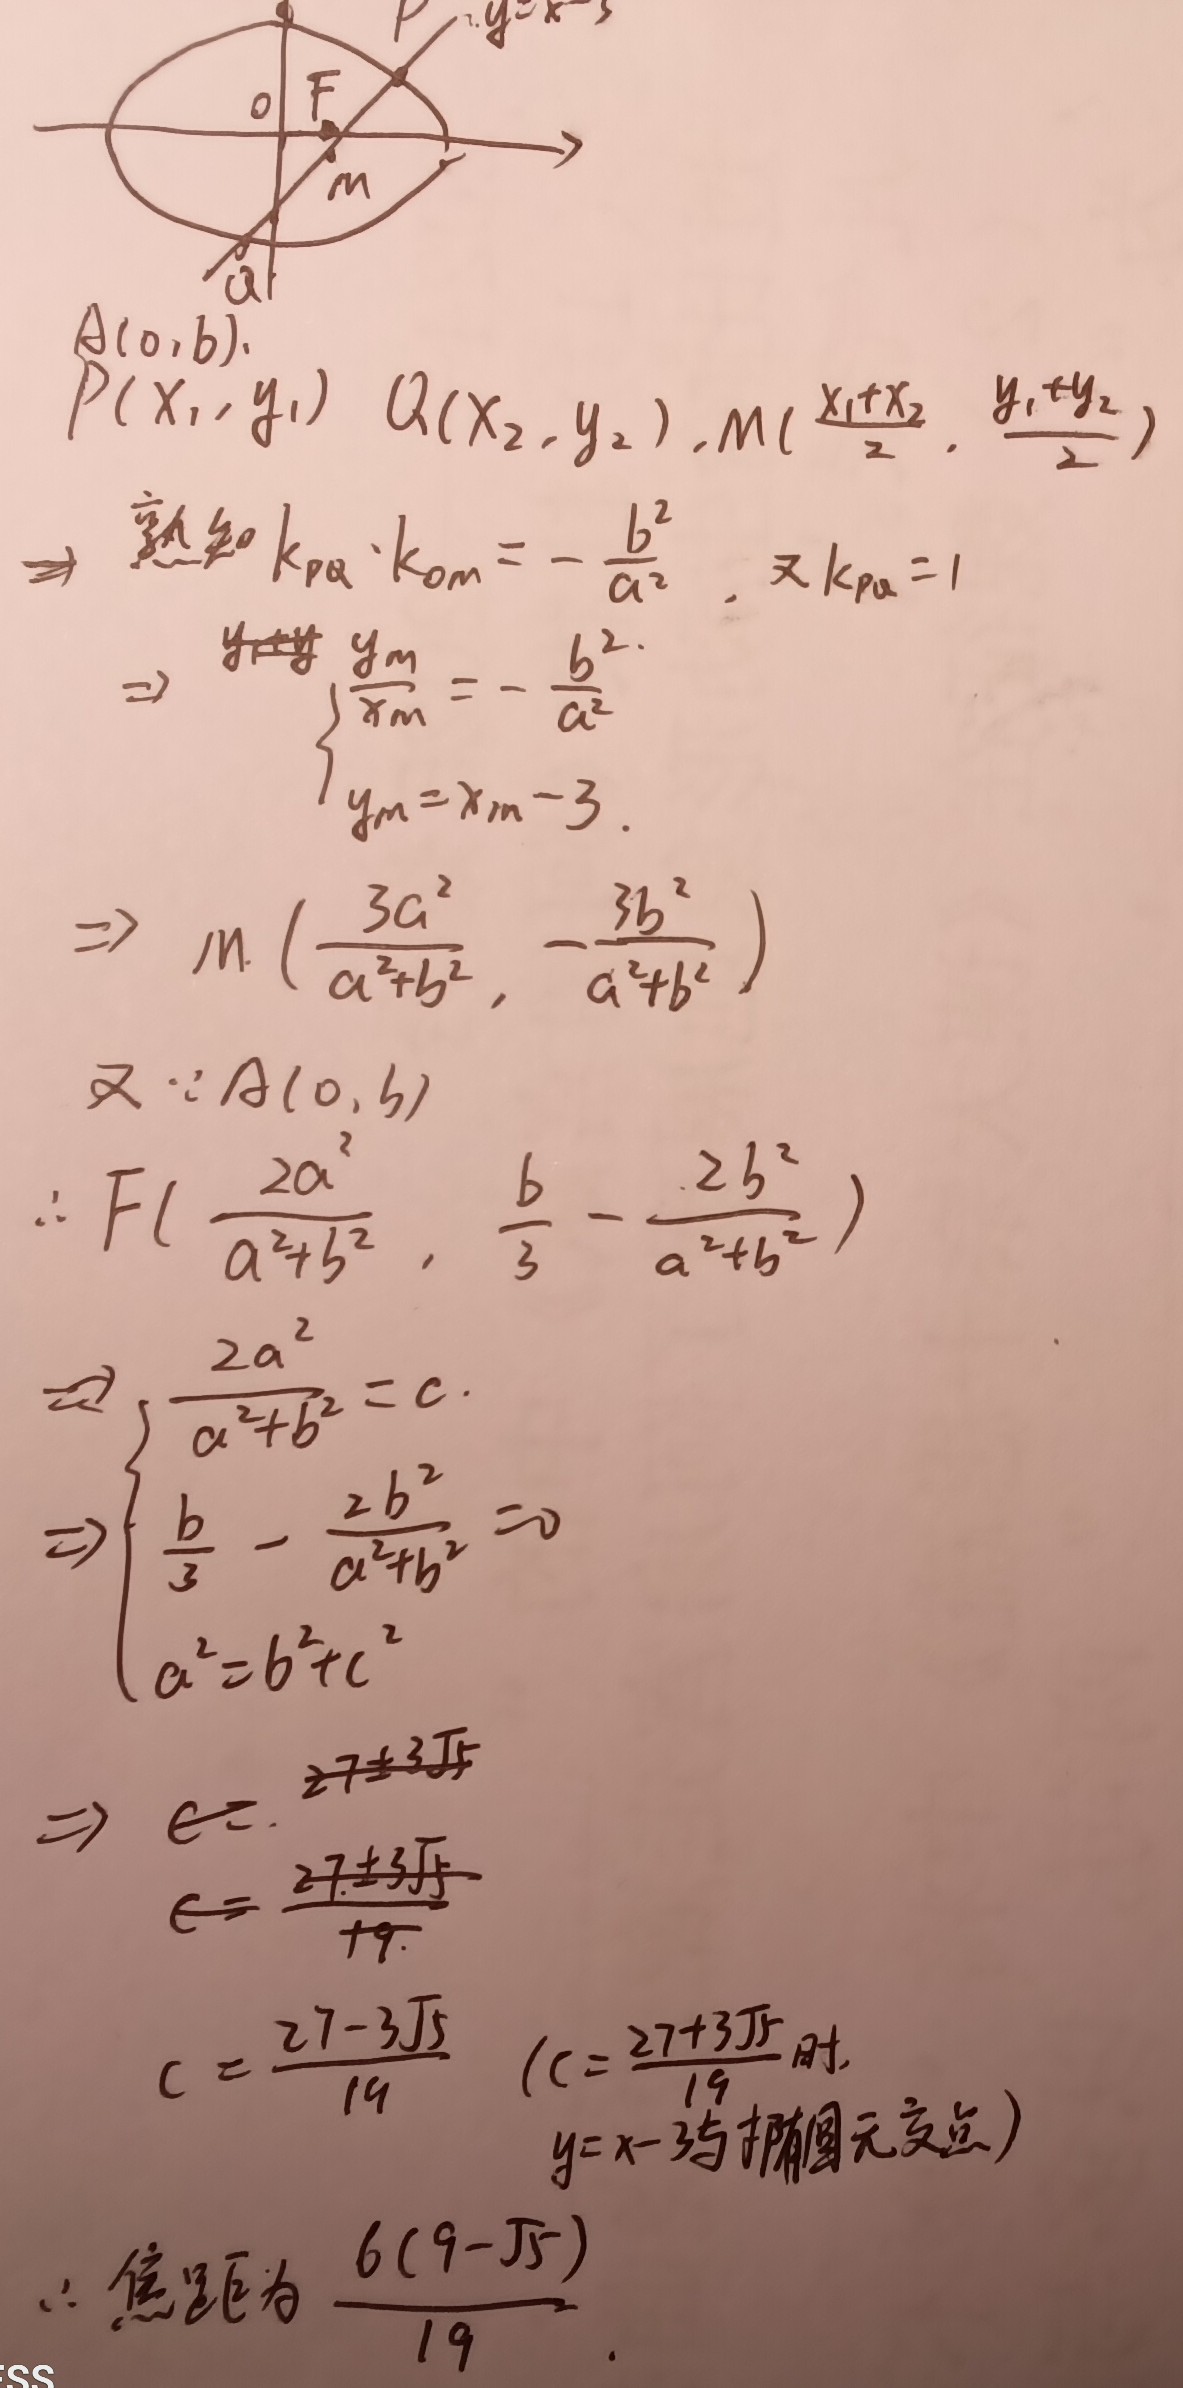 P y=x-3
O F
M
Q
A(0,b).
P(x₁,y₁) Q(x₂,y₂),M((x₁+x₂)/2,(y₁+y₂)/2)
⇒ 熟知k_PQ·k_OM=-b²/a²,又k_PQ=1
⇒ y₁+y { y_M/x_M=-b²/a²
y_M=x_M-3.
⇒ M(3a²/(a²+b²),-3b²/(a²+b²))
又∵A(0,b)
∴F(2a²/(a²+b²),b/3-2b²/(a²+b²))
⇒ { 2a²/(a²+b²)=c.
⇒ b/3-2b²/(a²+b²)=0
a²=b²+c²
⇒ c= 27±3√5
c=(27±3√5)/19.
c=(27-3√5)/19 (c=(27+3√5)/19时,
y=x-3与椭圆无交点)
∴焦距为6(9-√5)/19.
ESS